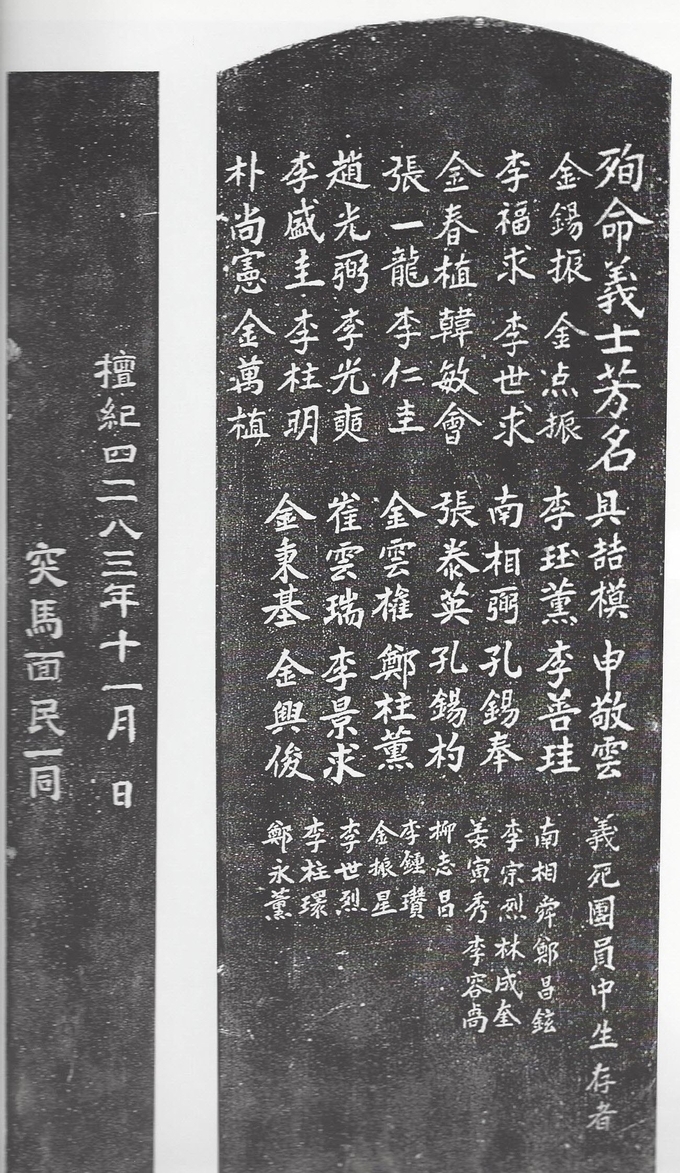 殉命義士芳名 具喆模 申敬雲 義死團員中生存者
金錫振 金点振 李珏薰 李善珪 南相舜 鄭昌鉉
李福求 李世求 南相弼 孔錫奉 李宗烈 林成奎
金春植 韓敏會 張泰英 孔錫杓 姜寅秀 李容卨
張一龍 李仁圭 金雲權 鄭柱薰 柳志昌
趙光弼 李光奭 崔雲瑞 李景求 李鍾瓚
李盛圭 李柱明 金秉基 金興俊 金振星
朴尚憲 金萬植 李世烈
李柱環
鄭永薰
檀紀四二八三年十一月 日
突馬面民一同